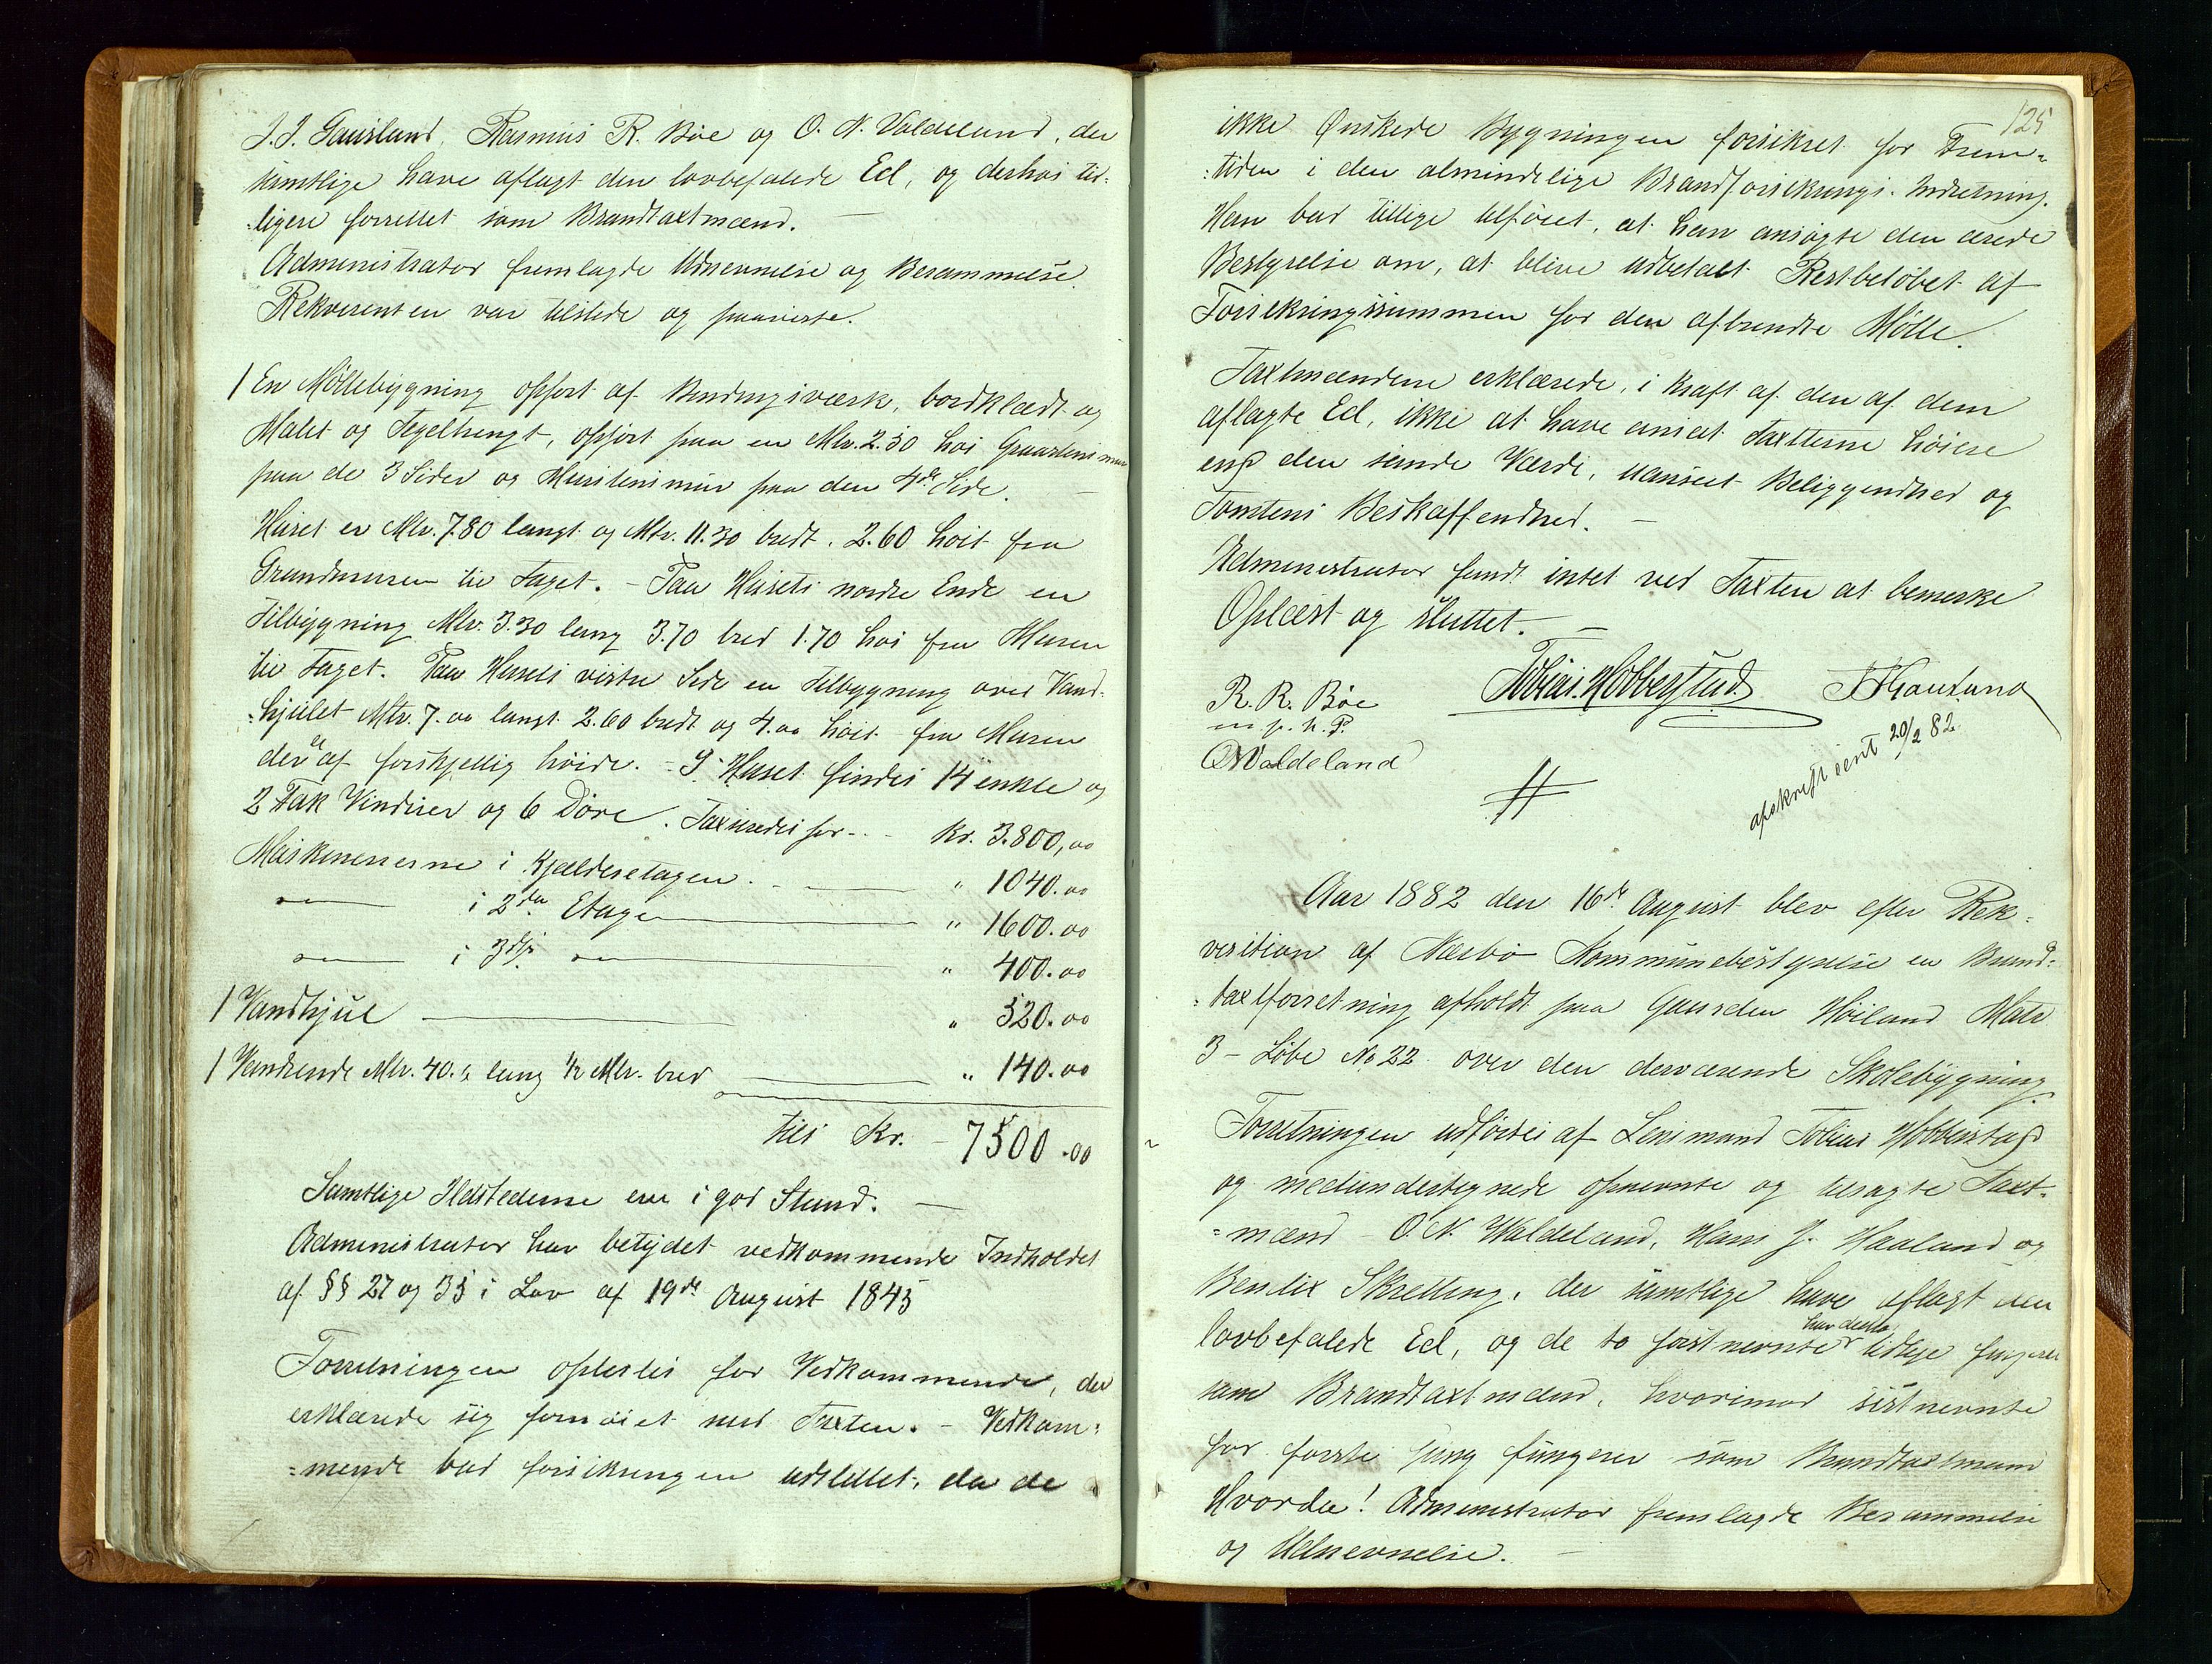 J. J. Gausland, Rasmus R. Bøe og O. N. Valdeland, der
samtlige have aflagt den lovbefalede Ed, og derhos tid-
:ligere forrettet som Brandtaxtmænd. —
Administrator fremlagde Udnevnelse og Berammelse.
Rekvirenten var tilstede og paaviste.
1 En Møllebygning opført af Bindingsværk, bordklædt og
Malet og Tegelhengt, opført paa en Mtr. 2.30 høi Graasteinsmur
paa de 3 Sider og Murstensmur paa den 4de Side. —
Huset er Mtr. 7.80 langt og Mtr. 11.30 bredt. 2.60 høit fra
Grundmuren til Taget. – Paa Husets nordre Ende en
Tilbygning Mtr. 3.30 lang 3.70 bred 1.70 høi fra Muren
til Taget. Paa Husets vestre Side en Tilbygning over Vand-
:hjulet Mtr. 7.00 langt 2.60 bredt og 4.00 høit fra Muren
der er af forskjellig høide. – I Huset findes 14 enkle og
2 Fak Vinduer og 6 Døre. Taxeredes for - . - Kr. 3.800,00
Maskinerierne i Kjælderetagen . - — " 1040.00
— i 2den Etage — " 1600.00
— i 3die — " 400.00
1 Vandhjul — " 520.00
1 Vandrende Mtr. 40. lang ½ Mtr. bred — " 140.00
Tils Kr. – 7500.00
Samtlige Ildstederne ere i god Stand. —
Administrator har betydet vedkommende Indholdet
af §§ 27 og 35 i Lov af 19de August 1845
Forretningen oplestes for Vedkommende, der
erklærede sig fornøiet med Taxten. – Vedkom:
:mende bad forsikringen udslettet, da de
125
ikke Ønskede Bygningen forsikret for Frem-
:tiden i den almindelige Brandforsikrings-Indretning.
Han bad tillige tilføiet, at han ansøgte den ærede
Bestyrelse om, at blive udbetalt Restbeløbet af
Forsikringssummen for den afbrendte Mølle.
Taxtmændene erklærede, i Kraft af den af dem
aflagte Ed, ikke at have ansat Taxterne høiere
end den sande Værdi, uanseet Beliggendhed og
Tomtens Beskaffendhed. —
Administrator fandt intet ved Taxten at bemerke
Oplæst og sluttet. —
R. R. Bøe Tobias Hobberstad J J Gausland
m. p. h. P.
O N Valdeland
afskrift sent 20/2 82
Aar 1882 den 16de August blev efter Rek-
visition af Nærbø Kommunebestyrelse en Brand-
:taxtforretning afholdt paa Gaarden Høiland Matr
3 – Løbe No 22 over den derværende Skolebygning.
Forretningen udførtes af Lensmand Tobias Hobberstad
og medundertegnede opnevnte og tilsagte Taxt-
=mænd – O. N. Waldeland, Hans J. Haaland og
Bendix Skretting, der samtlige have aflagt den
lovbefalede Ed, og de to førstnevnte har desto tidlige fungeret
som Brandtaxtmænd, hvorimod sistnevnte
for første gang fungerer som Brandtaxtmand
Hvorda! Administrator fremlagde Berammelse
og Udnevnelse. —